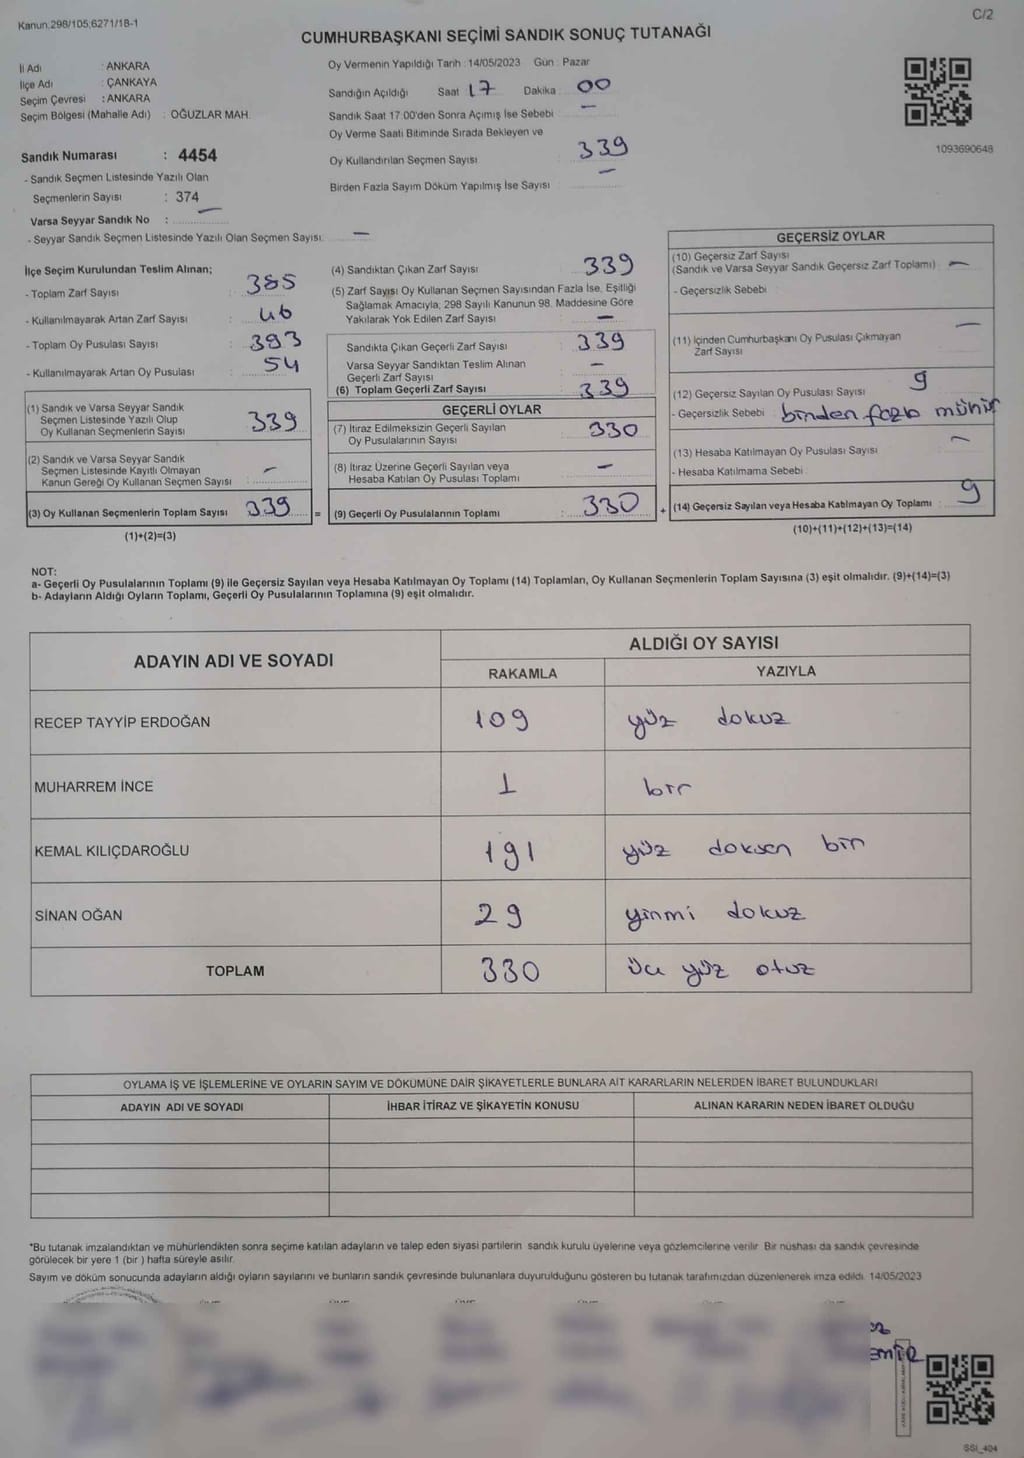 Kanun.298/105;6271/18-1
C/2
CUMHURBAŞKANI SEÇİMİ SANDIK SONUÇ TUTANAĞI
İl Adı : ANKARA
İlçe Adı : ÇANKAYA
Seçim Çevresi : ANKARA
Seçim Bölgesi (Mahalle Adı) : OĞUZLAR MAH.
Sandık Numarası : 4454
- Sandık Seçmen Listesinde Yazılı Olan
Seçmenlerin Sayısı : 374
Varsa Seyyar Sandık No : —
- Seyyar Sandık Seçmen Listesinde Yazılı Olan Seçmen Sayısı: —
Oy Vermenin Yapıldığı Tarih : 14/05/2023 Gün : Pazar
Sandığın Açıldığı Saat 17 Dakika : 00
Sandık Saat 17:00'den Sonra Açımış İse Sebebi : —
Oy Verme Saati Bitiminde Sırada Bekleyen ve
Oy Kullandırılan Seçmen Sayısı 339
Birden Fazla Sayım Döküm Yapılmış İse Sayısı : —
1093690648
İlçe Seçim Kurulundan Teslim Alınan;
- Toplam Zarf Sayısı : 385
- Kullanılmayarak Artan Zarf Sayısı : 46
- Toplam Oy Pusulası Sayısı : 393
- Kullanılmayarak Artan Oy Pusulası : 54
(1) Sandık ve Varsa Seyyar Sandık
Seçmen Listesinde Yazılı Olup
Oy Kullanan Seçmenlerin Sayısı : 339
(2) Sandık ve Varsa Seyyar Sandık
Seçmen Listesinde Kayıtlı Olmayan
Kanun Gereği Oy Kullanan Seçmen Sayısı : —
(3) Oy Kullanan Seçmenlerin Toplam Sayısı : 339
(1)+(2)=(3)
(4) Sandıktan Çıkan Zarf Sayısı : 339
(5) Zarf Sayısı Oy Kullanan Seçmen Sayısından Fazla İse, Eşitliği
Sağlamak Amacıyla; 298 Sayılı Kanunun 98. Maddesine Göre
Yakılarak Yok Edilen Zarf Sayısı : —
Sandıkta Çıkan Geçerli Zarf Sayısı : 339
Varsa Seyyar Sandıktan Teslim Alınan
Geçerli Zarf Sayısı : —
(6) Toplam Geçerli Zarf Sayısı : 339
GEÇERLİ OYLAR
(7) İtiraz Edilmeksizin Geçerli Sayılan
Oy Pusulalarının Sayısı : 330
(8) İtiraz Üzerine Geçerli Sayılan veya
Hesaba Katılan Oy Pusulası Toplamı : —
= (9) Geçerli Oy Pusulalarının Toplamı : 330
GEÇERSİZ OYLAR
(10) Geçersiz Zarf Sayısı
(Sandık ve Varsa Seyyar Sandık Geçersiz Zarf Toplamı) : —
- Geçersizlik Sebebi :
(11) İçinden Cumhurbaşkanı Oy Pusulası Çıkmayan
Zarf Sayısı : —
(12) Geçersiz Sayılan Oy Pusulası Sayısı : 9
- Geçersizlik Sebebi : birden fazla mühür
(13) Hesaba Katılmayan Oy Pusulası Sayısı : —
- Hesaba Katılmama Sebebi :
+ (14) Geçersiz Sayılan veya Hesaba Katılmayan Oy Toplamı : 9
(10)+(11)+(12)+(13)=(14)
NOT:
a- Geçerli Oy Pusulalarının Toplamı (9) ile Geçersiz Sayılan veya Hesaba Katılmayan Oy Toplamı (14) Toplamları, Oy Kullanan Seçmenlerin Toplam Sayısına (3) eşit olmalıdır. (9)+(14)=(3)
b- Adayların Aldığı Oyların Toplamı, Geçerli Oy Pusulalarının Toplamına (9) eşit olmalıdır.
ADAYIN ADI VE SOYADI
ALDIĞI OY SAYISI
RAKAMLA YAZIYLA
RECEP TAYYİP ERDOĞAN 109 yüz dokuz
MUHARREM İNCE 1 bir
KEMAL KILIÇDAROĞLU 191 yüz doksan bir
SİNAN OĞAN 29 yirmi dokuz
TOPLAM 330 üç yüz otuz
OYLAMA İŞ VE İŞLEMLERİNE VE OYLARIN SAYIM VE DÖKÜMÜNE DAİR ŞİKAYETLERLE BUNLARA AİT KARARLARIN NELERDEN İBARET BULUNDUKLARI
ADAYIN ADI VE SOYADI İHBAR İTİRAZ VE ŞİKAYETİN KONUSU ALINAN KARARIN NEDEN İBARET OLDUĞU
*Bu tutanak imzalandıktan ve mühürlendikten sonra seçime katılan adayların ve talep eden siyasi partilerin sandık kurulu üyelerine veya gözlemcilerine verilir. Bir nüshası da sandık çevresinde
görülecek bir yere 1 (bir ) hafta süreyle asılır.
Sayım ve döküm sonucunda adayların aldığı oyların sayılarını ve bunların sandık çevresinde bulunanlara duyurulduğunu gösteren bu tutanak tarafımızdan düzenlenerek imza edildi. 14/05/2023
SSI_404